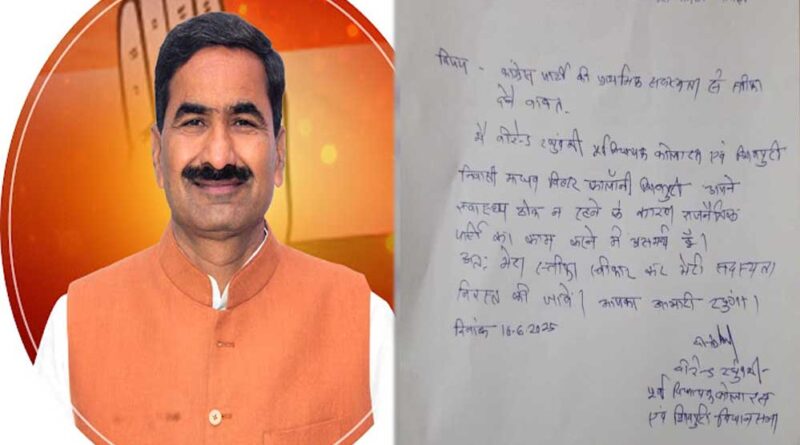 विषय - कांग्रेस पार्टी की प्राथमिक सदस्यता से स्तीफा
देने बावत.
मैं वीरेन्द्र रघुवंशी पूर्व विधायक कोलारस एवं शिवपुरी
निवासी माधव विहार कालोनी शिवपुरी अपने
स्वास्थ्य ठीक न रहने के कारण राजनैतिक
पार्टी का काम करने में असमर्थ हूँ।
अतः मेरा स्तीफा स्वीकार कर मेरी सदस्यता
निरस्त की जावें। आपका आभारी रहूंगा।
दिनांक 16.6.2025
वीरेन्द्र रघुवंशी-
पूर्व विधायक कोलारस
एवं शिवपुरी विधानसभा